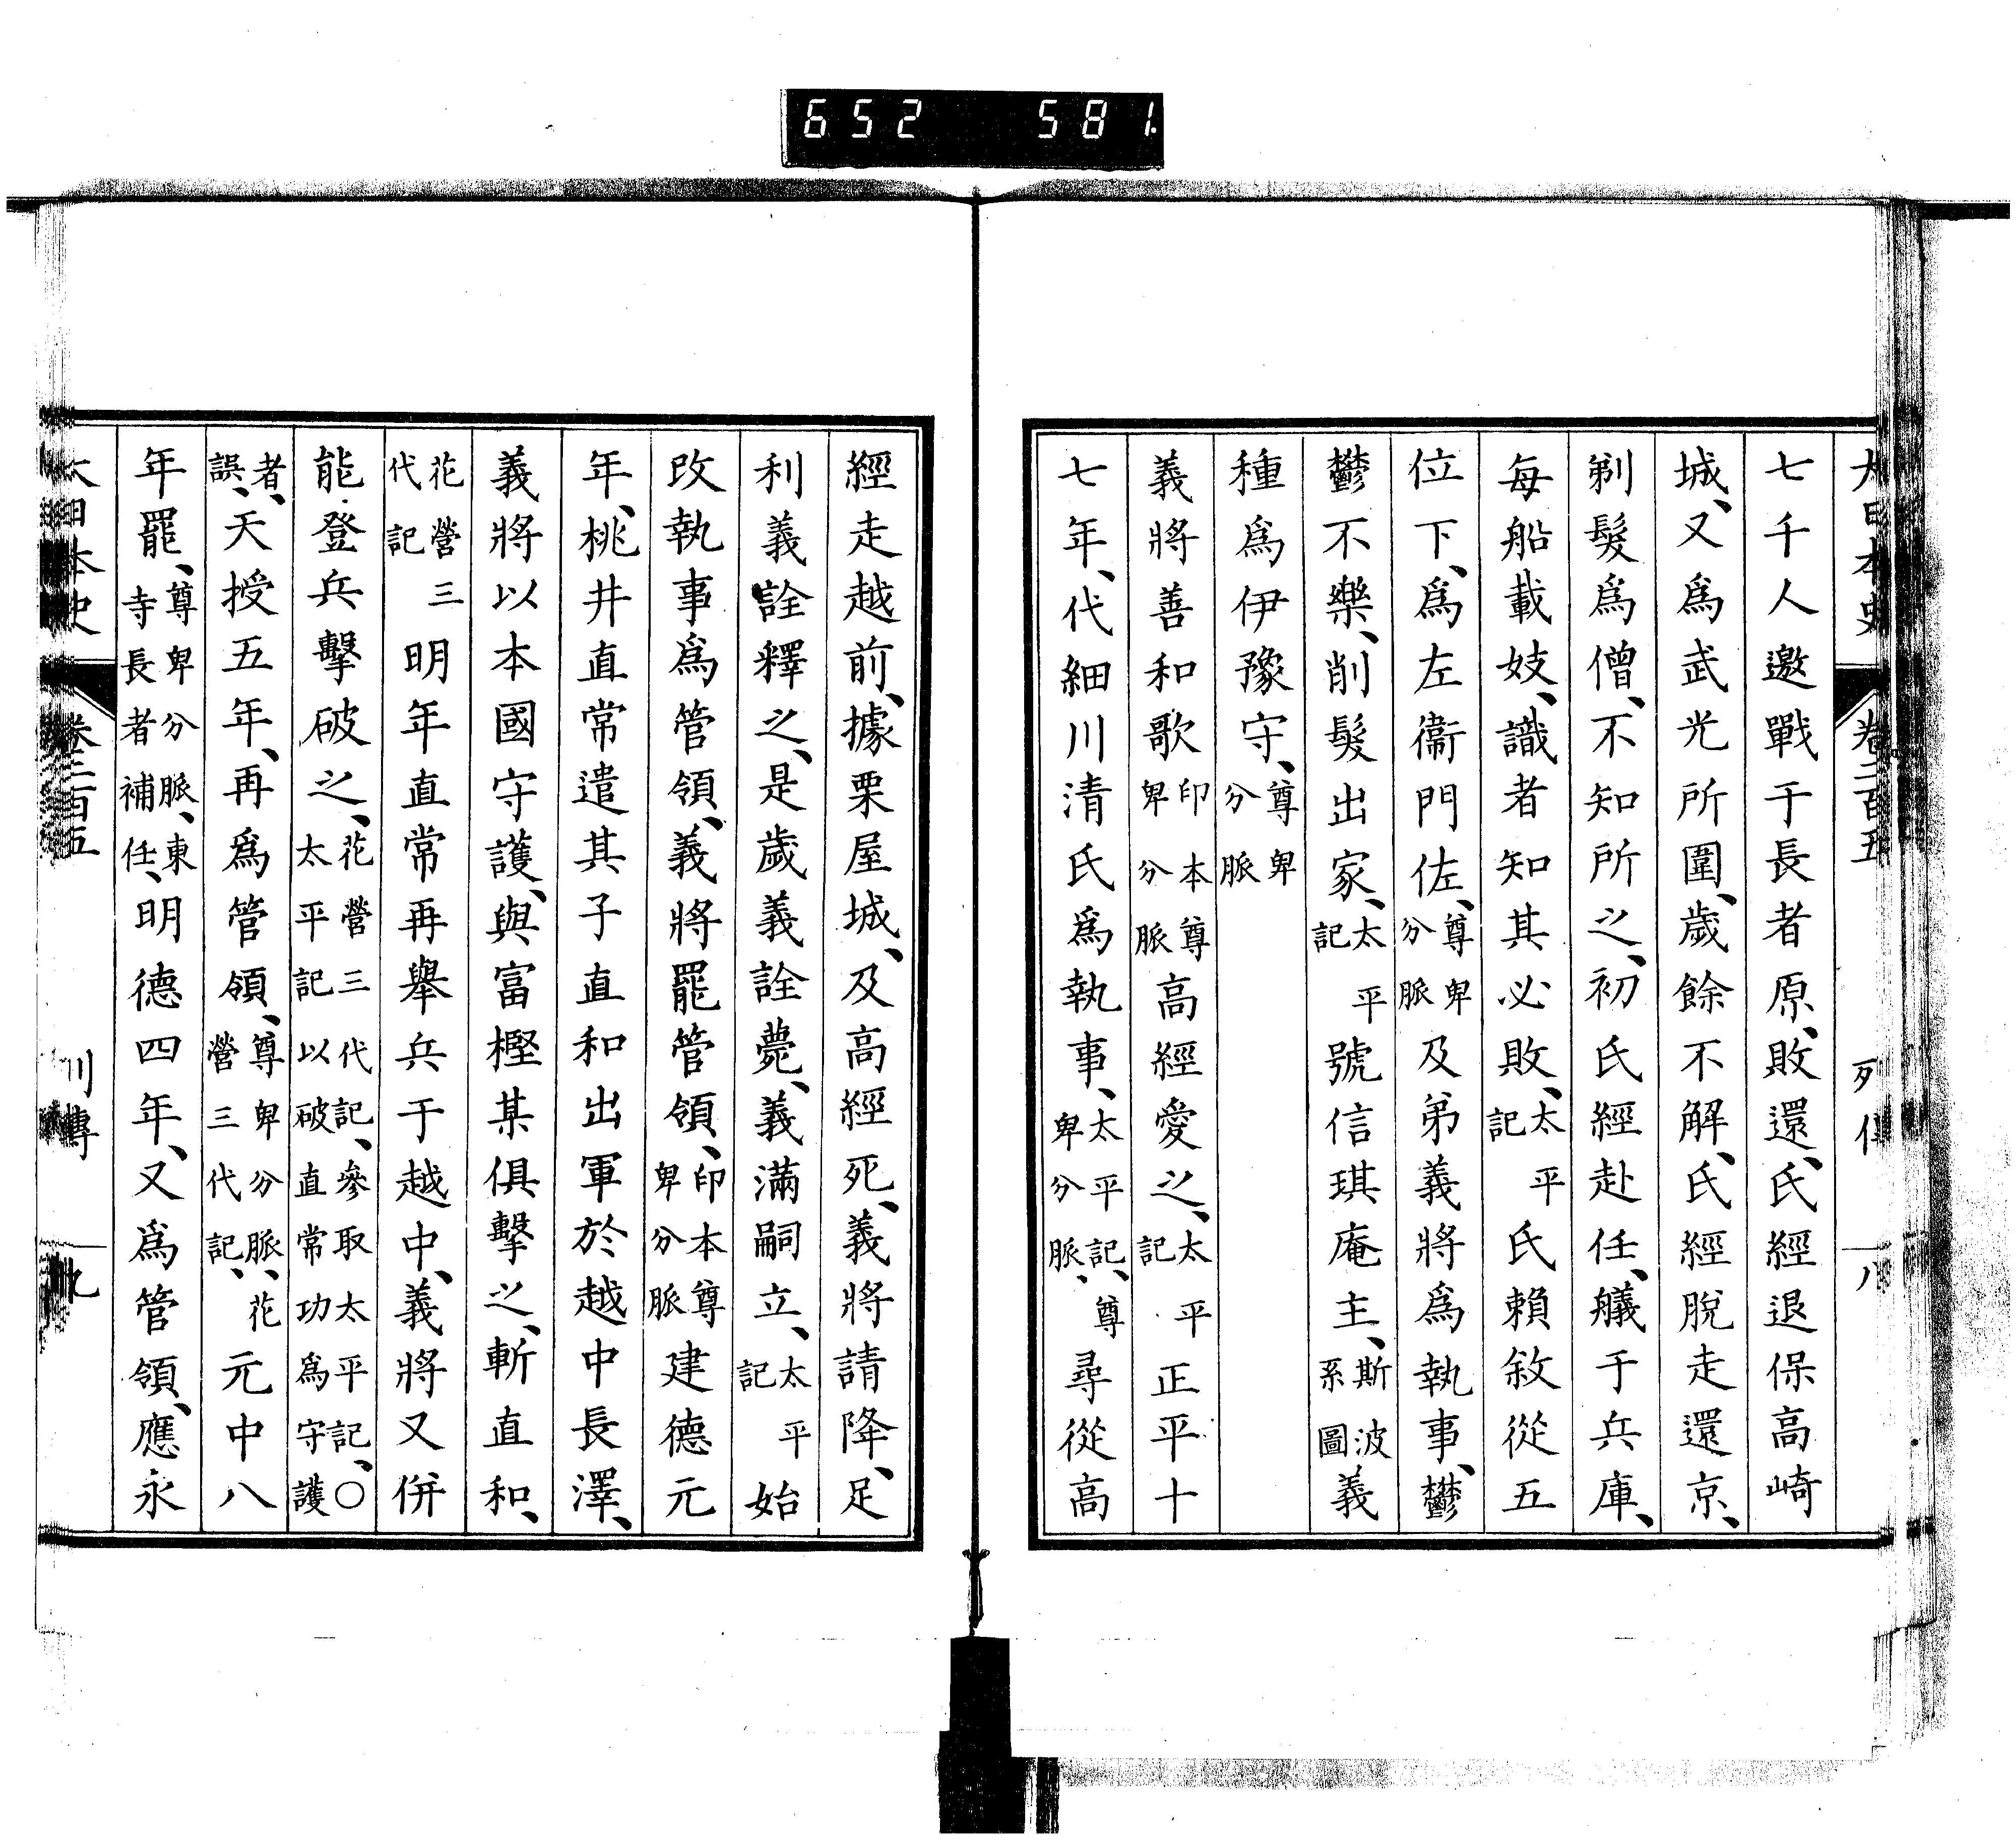 652 581
大日本史 卷二百五 列傳 八
七千人邀戰于長者原、敗還、氏經退保高崎
城、又爲武光所圍、歲餘不解、氏經脫走還京、
剃髮爲僧、不知所之、初氏經赴任、艤于兵庫、
每船載妓、識者知其必敗、太平記氏賴敘從五
位下、爲左衞門佐、尊卑分脈及弟義將爲執事、鬱
鬱不樂、削髮出家、太平記號信琪庵主、斯波系圖義
種爲伊豫守、尊卑分脈
義將善和歌印本尊卑分脈高經愛之、太平記正平十
七年、代細川清氏爲執事、太平記、尊卑分脈、尋從高
經走越前、據栗屋城、及高經死、義將請降、足
利義詮釋之、是歲義詮薨、義滿嗣立、太平記始
改執事爲管領、義將罷管領、印本尊卑分脈建德元
年、桃井直常遣其子直和出軍於越中長澤、
義將以本國守護、與富樫某俱擊之、斬直和、
花營三代記明年直常再舉兵于越中、義將又併
能登兵擊破之、花營三代記、參取太平記、○太平記以破直常功爲守護
者、誤、天授五年、再爲管領、尊卑分脈、花營三代記、元中八
年罷、尊卑分脈、東寺長者補任、明德四年、又爲管領、應永
大日本史 卷二百五 列傳 九